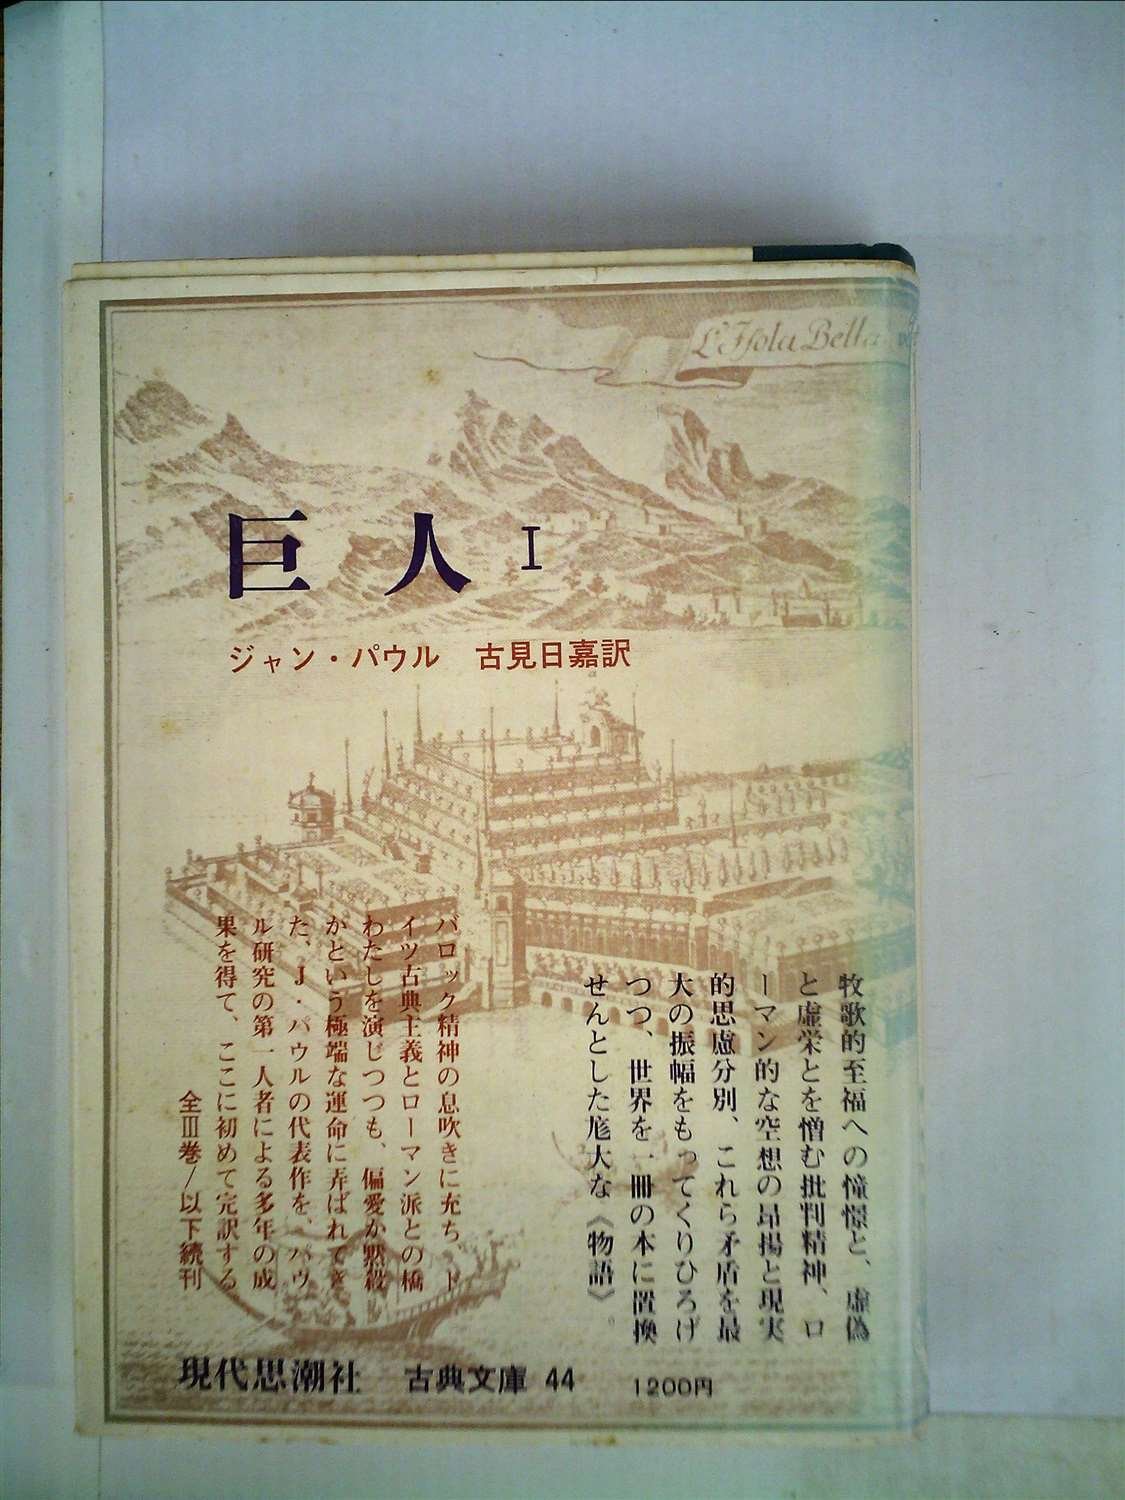 L'Isola Bella
巨人 I
ジャン・パウル 古見日嘉訳
牧歌的至福への憧憬と、虚偽
と虚栄とを憎む批判精神、ロ
ーマン的な空想の昂揚と現実
的思慮分別、これら矛盾を最
大の振幅をもってくりひろげ
つつ、世界を一冊の本に置換
せんとした尨大な《物語》。
バロック精神の息吹きに充ち、ド
イツ古典主義とローマン派との橋
わたしを演じつつも、偏愛か黙殺
かという極端な運命に弄ばれてき
た、J・パウルの代表作を、パウ
ル研究の第一人者による多年の成
果を得て、ここに初めて完訳する
全III巻/以下続刊
現代思潮社 古典文庫 44 1200円